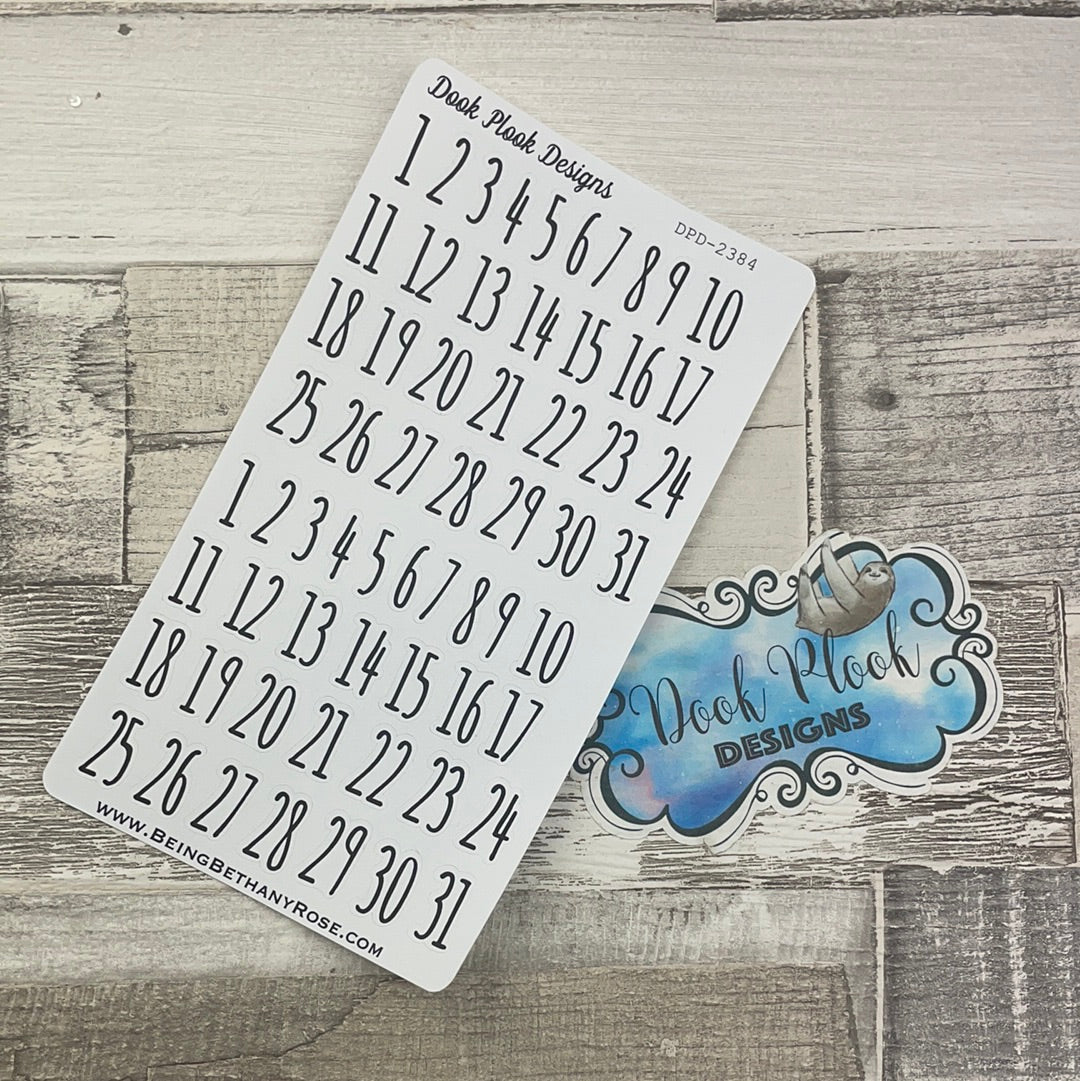 Dook Plook Designs
DPD-2384
1 2 3 4 5 6 7 8 9 10
11 12 13 14 15 16 17
18 19 20 21 22 23 24
25 26 27 28 29 30 31
1 2 3 4 5 6 7 8 9 10
11 12 13 14 15 16 17
18 19 20 21 22 23 24
25 26 27 28 29 30 31
www.BeingBethanyRose.com
Dook Plook
DESIGNS